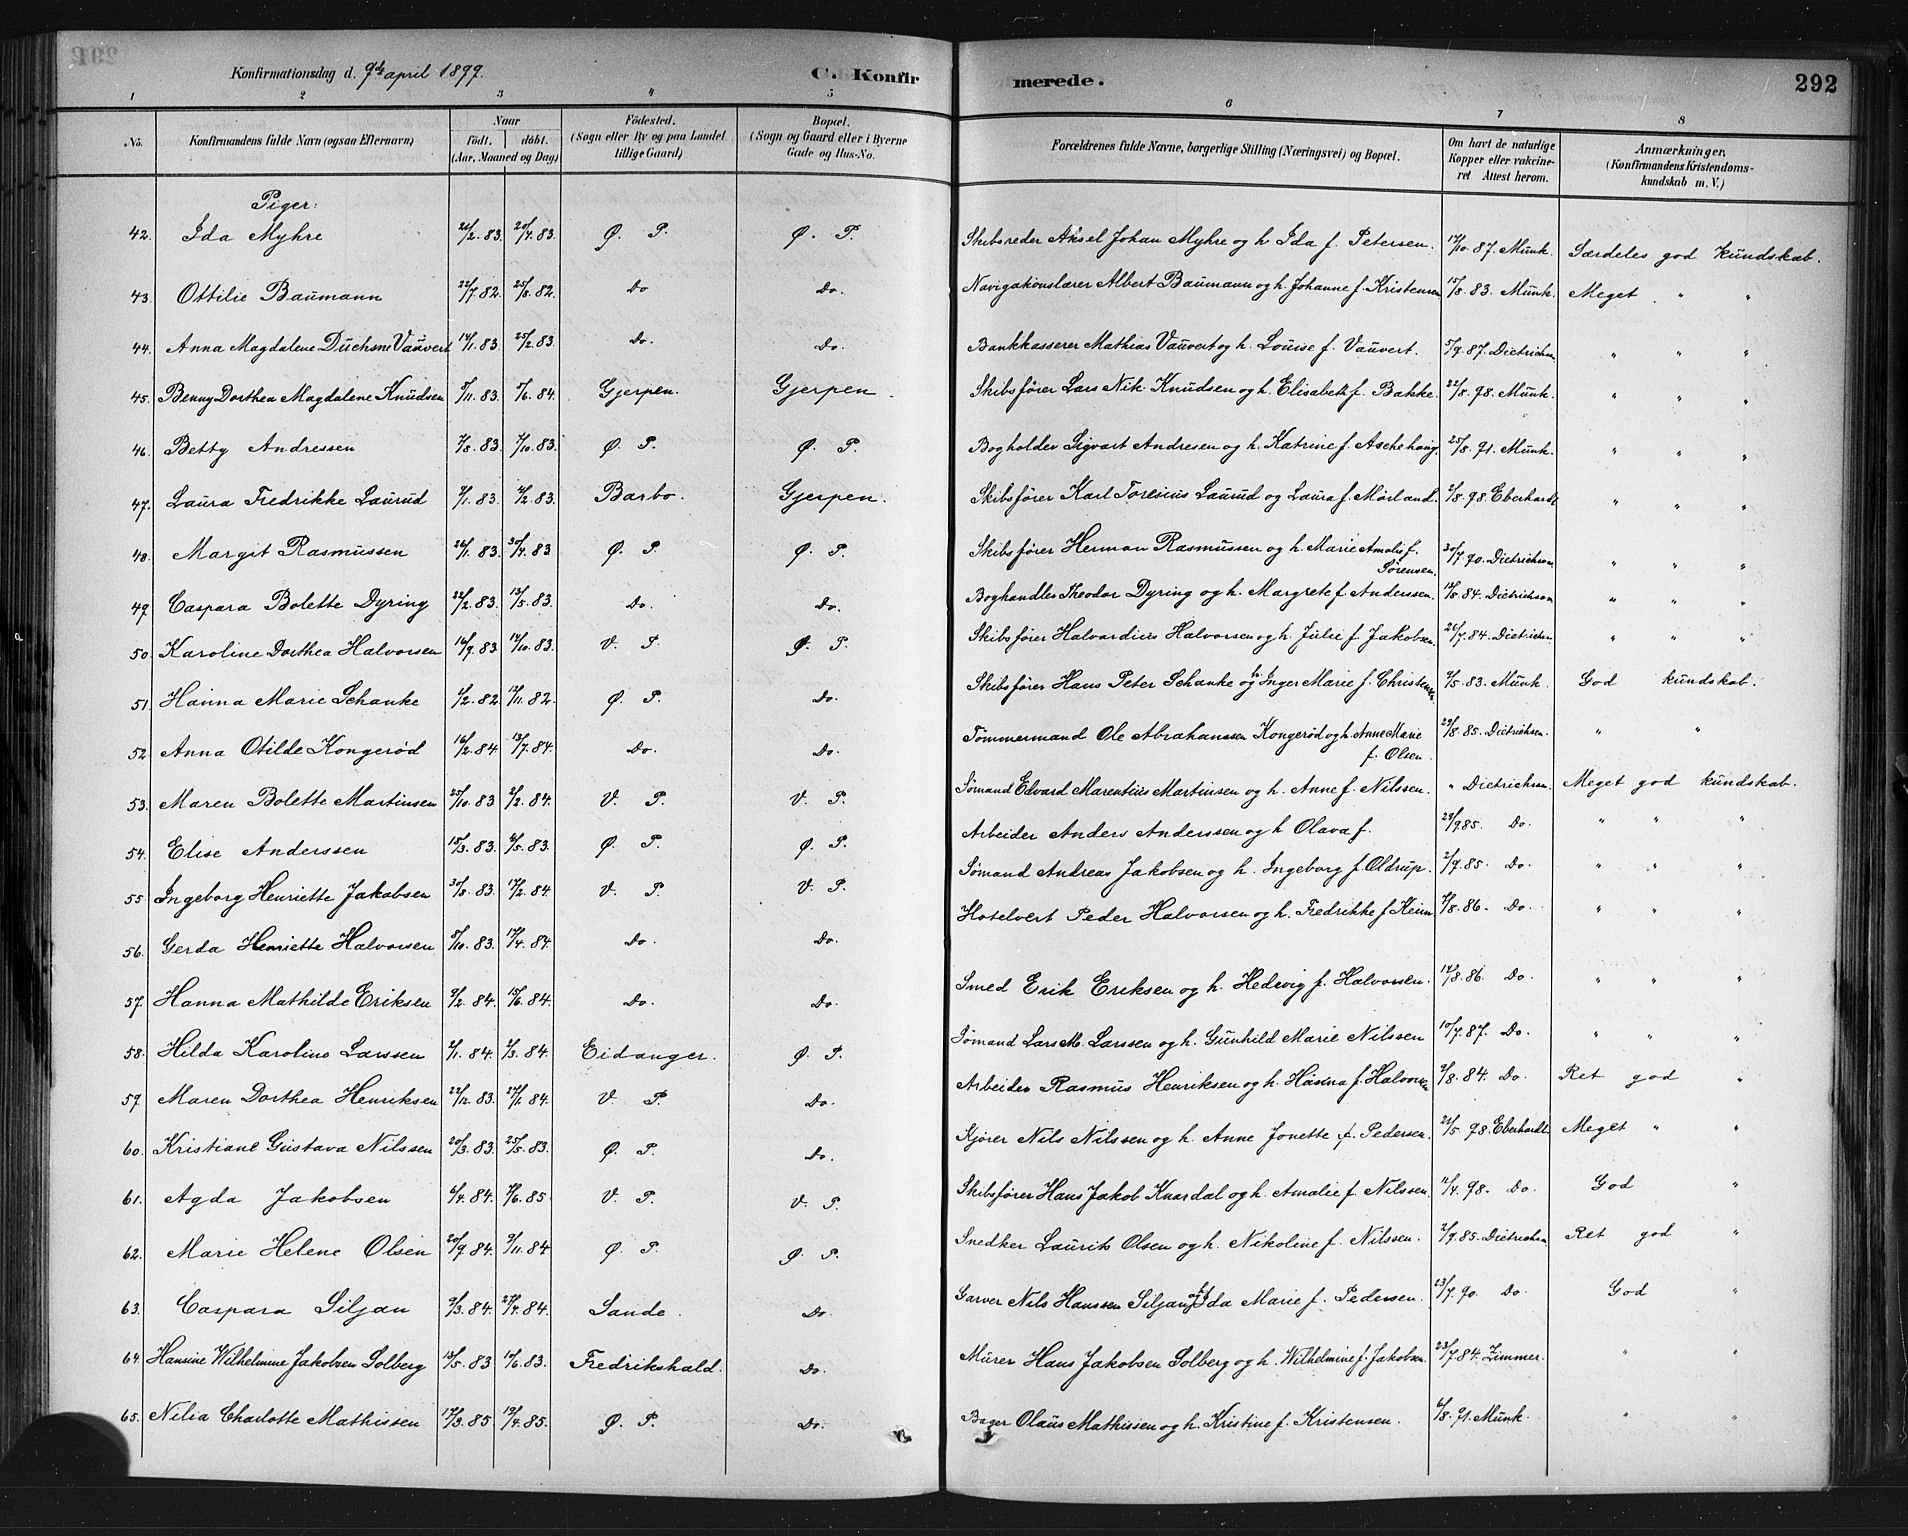 Konfirmationsdag d. 9de april 1899. C. Konfirmerede. 292
1 2 3 4 5 6 7 8
No. Konfirmandens fulde Navn (ogsaa Efternavn) Naar födt. döbt. (Aar, Maaned og Dag) Födested. (Sogn eller By og paa Landet tillige Gaard) Bopæl. (Sogn og Gaard eller i Byerne Gade og Hus-No. Forældrenes fulde Navne, borgerlige Stilling (Næringsvei) og Bopæl. Om havt de naturlige Kopper eller vakcineret Attest herom. Anmærkninger, (Konfirmandens Kristendomskundskab m. V.)
Piger:
42. Ida Myhre 21/2. 83. 20/4. 83. Ø. P. Ø. P. Skibsreder Aksel Johan Myhre og h. Ida f. Petersen. 87. Munk. Særdeles god kundskab.
43. Ottilie Baumann 22/7. 82. 25/8. 82. Do Do. Navigationslærer Albert Baumann og h. Johanne f. Kristensen 15/8. 83. Munk. Meget " "
44. Anna Magdalene Duchsne Vauvert 14/1. 83. 25/2. 83. Do. Do. Bankkasserer Mathias Vauvert og h. Louise f. Vauvert. 5/9. 87. Dietrichsen " " "
45. Benny Dorthea Magdalene Knudsen 5/11. 83. 5/6. 84. Gjerpen. Gjerpen. Skibsfører Lars Nik. Knudsen og h. Elisabeth f. Bakke. 22/8. 98. Munk. " " "
46. Betty Andressen 7/8. 83. 7/10. 83. Ø. P. Ø. P. Bogholder Sigvart Andresen og h. Katrine f. Aschehoug. 25/8. 91. Munk. " " "
47. Laura Fredrikke Laurud 83. 83. Barbo. Gjerpen. Skibsfører Karl Toresius Laurud og Laura f. Mørland. 2/8. 98. Eberhardt " " "
48. Margit Rasmussen 26/1. 83. 30/4. 83 Ø. P. Ø. P. Skibsfører Herman Rasmussen og h. Marie Amalie f. Sørensen. 30/7. 90. Dietrichson " " "
49. Caspara Bolette Dyring 22/2. 83. 13/5. 83. Do. Do. Boghandler Theodor Dyring og h. Margrete f. Anderssen. 84. Dietrichson " " "
50. Karoline Dorthea Halvorsen 16/9. 83. 83. V. P. Ø. P. Skibsfører Halvardius Halvorsen og h. Julie f. Jakobsen. 26/7. 84. Dietrichsn " " "
51. Hanna Marie Schanke 82. 82. Ø. P. Do. Skibsfører Hans Peter Schanke og h. Inger Marie f. Christensen 83. Munk. God kundskab.
52. Anna Otilde Kongerød 16/2. 84. 13/7. 84. Do. Do. Tømmermand Ole Abrahamsen Kongerød og h. Anne Marie f. Olsen. 85. Dietrichsen. " "
53. Maren Bolette Martinsen 25/10. 83 2/2. 84. V. P. V. P. Sømand Edvard Marentius Martinsen og h. Anne f. Nilssen. " Dietrichsen. Meget god kundskab.
54. Elise Anderssen 83. 6/5. 83. Ø. P. Ø. P. Arbeider Anders Anderssen og h. Olava f. 85. Do " " "
55. Ingeborg Henriette Jakobsen 30/8. 83. 17/2. 84. V. P. V. P. Sømand Andreas Jakobsen og h. Ingeborg f. Oldrup. 2/9. 85. Do. " " "
56. Gerda Henriette Halvorsen 5/10. 83. 17/4. 84. Do. Do. Hotelvert Peder Halvorsen og h. Fredrikke f. Keim 86. Do. " " "
57. Hanna Mathilde Eriksen 9/2. 84. 15/6. 84. Do. Do. Smed Erik Eriksen og h. Hedevig f. Halvorsen. 86. Do " " "
58. Hilda Karoline Larssen 84. 2/3. 84. Eidanger. Ø. P. Sømand Lars M. Larssen og h. Gunhild Marie Nilssen 10/7. 87. Do. " " "
59. Maren Dorthea Henriksen 22/12. 83. 84. V. P. Do. Arbeider Rasmus Henriksen og h. Hasina f. Halvorsen 84. Do. Ret god "
60. Kristiane Gustava Nilssen 20/3. 83. 25/5. 83. Ø. P. Do. Kjører Nils Nilssen og h. Anne Jonette f. Pedersen. 21/5 98. Eberhardt. Meget " "
61. Agda Jakobsen 6/4. 84. 85. V. P. V. P. Skibsfører Hans Jakob Knardal og h. Amalie f. Nilssen. 11/4. 98. Do. God "
62. Marie Helene Olsen 20/9. 84. 9/11. 84 Ø. P. Ø. P. Snedker Laurits Olsen og h. Nikoline f. Nilssen. 2/9. 85. Dietrichsn Ret god "
63. Caspara Siljan 9/3. 84. 27/4. 84. Sande. Do. Garver Nils Hanssen Siljan og h. Ida Marie f. Pedersen. 23/7. 90. Do God "
64. Hansine Wilhelmine Jakobsen Solberg 13/5. 83 17/6. 83. Fredrikshald. Do. Murer Hans Jakobsen Solberg og h. Wilhelmine f. Jakobsen. 23/7 84. Zimmer. " "
65. Nilia Charlotte Mathissen 85 85. Ø. P. Do. Bager Olaus Mathissen og h. Kristine f. Kristensen. 6/8. 91. Munk. " "